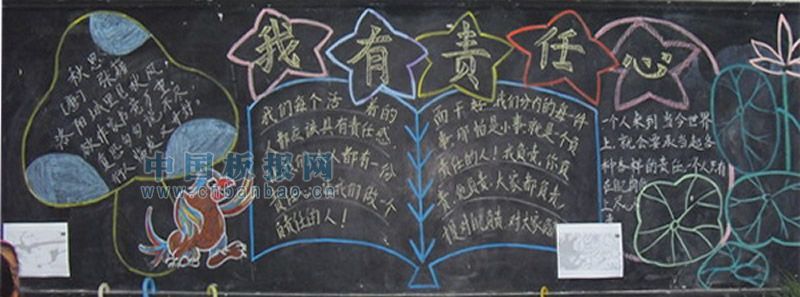 我有责任心
秋思
(唐) 张籍
洛阳城里见秋风,
欲作家书意万重。
复恐匆匆说不尽,
行人临发又开封。
我们每个活 着的
都应该具有责任感,
人都有一份
我们做个
责任的人!
而干好我们分内的每一件
事,哪怕是小事,就是个负
责任的人!我负责,你负
责,他负责,大家都负责,
对大家
一个人来到当今世界
上,就会要承当起各
种各样的责任,个人只有
在
上
中国板报网
www.cnbanbao.cn